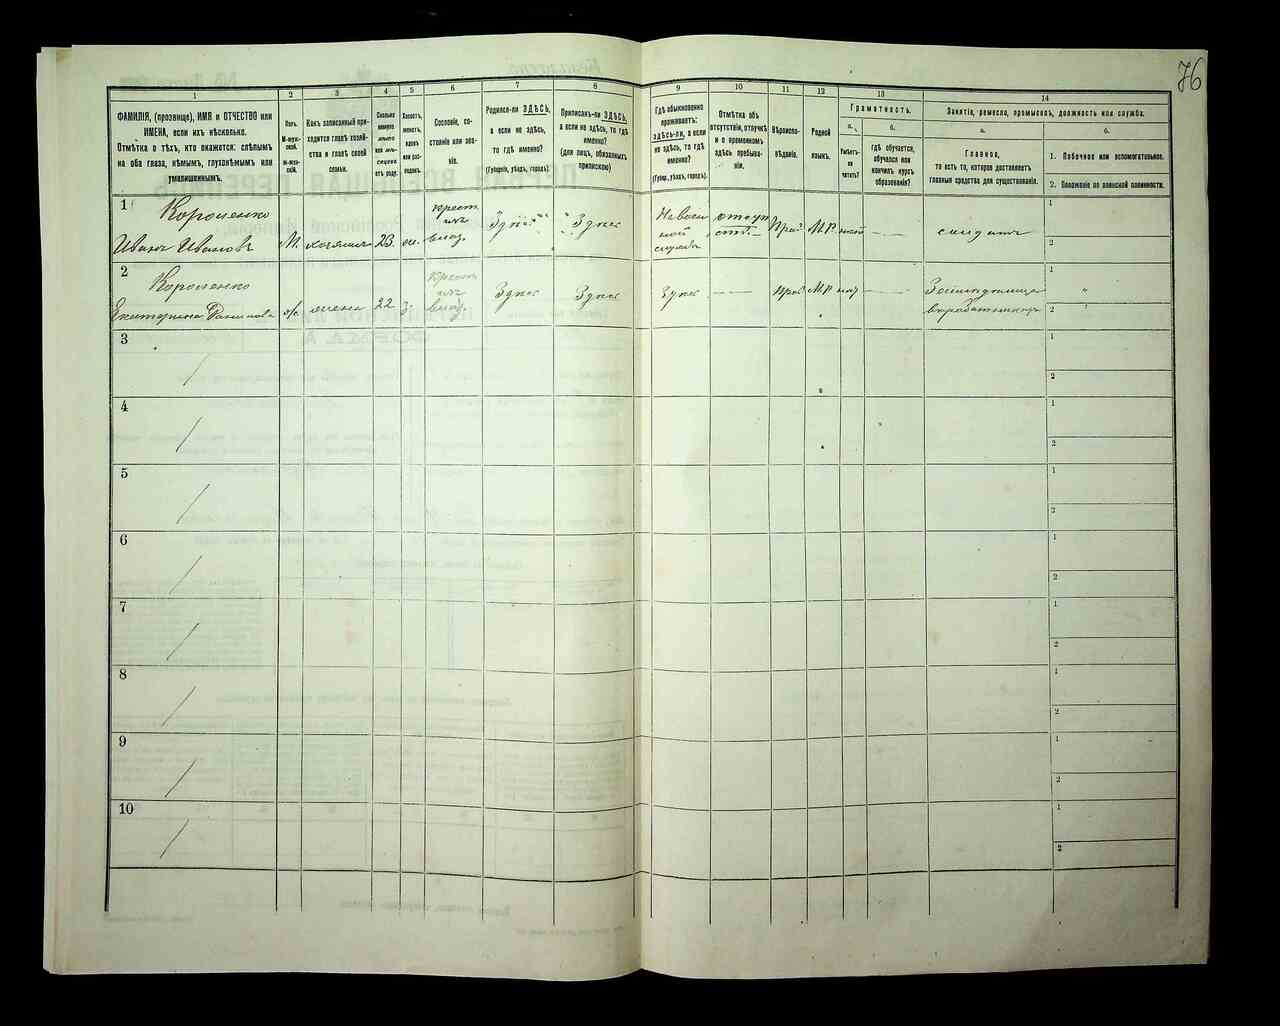 76
1
2
3
4
5
6
7
8
9
10
11
12
13
14
ФАМИЛІЯ, (прозвище), ИМЯ и ОТЧЕСТВО или
ИМЕНА, если ихъ нѣсколько.
Отмѣтка о тѣхъ, кто окажется: слѣпымъ
на оба глаза, нѣмымъ, глухонѣмымъ или
умалишеннымъ.
Полъ.
М-муж-
ской.
Ж-жен-
скій.
Какъ записанный при-
ходится главѣ хозяй-
ства и главѣ своей
семьи.
Сколько
минуло
лѣтъ
или мѣ-
сяцевъ
отъ роду.
Холостъ,
женатъ,
вдовъ
или раз-
веденъ.
Сословіе, со-
стояніе или зва-
ніе.
Родился-ли ЗДѢСЬ,
а если не здѣсь,
то гдѣ именно?
(Губернія, уѣздъ, городъ).
Приписанъ-ли ЗДѢСЬ,
а если не здѣсь, то гдѣ
именно?
(для лицъ, обязанныхъ
припискою)
Гдѣ обыкновенно
проживаетъ:
ЗДѢСЬ-ли, а если
не здѣсь, то гдѣ
именно?
(Губер., уѣздъ, городъ).
Отмѣтка объ
отсутствіи, отлучкѣ
и о временномъ
здѣсь пребыва-
ніи.
Вѣроиспо-
вѣданіе.
Родной
языкъ.
Грамотность.
а.
Умѣетъ-
ли
читать?
б.
гдѣ обучается,
обучался или
кончилъ курсъ
образованія?
Занятіе, ремесло, промыселъ, должность или служба.
а.
Главное,
то есть то, которое доставляетъ
главныя средства для существованія.
б.
1. Побочное или вспомогательное.
2. Положеніе по воинской повинности.
1
Короченко
Иванъ Ивановъ
М.
хозяинъ
23.
крест
изъ
влад.
Здѣсь
Здѣсь
отсут
Прав
М.Р.
солдатъ
1
2
2
Короченко
Екатерина
ж.
жена
22
з.
Крест
изъ
влад.
Здѣсь
Здѣсь
Здѣсь
Прав
М.Р.
1
2
3
1
2
4
1
2
5
1
2
6
1
2
7
1
2
8
1
2
9
1
2
10
1
2